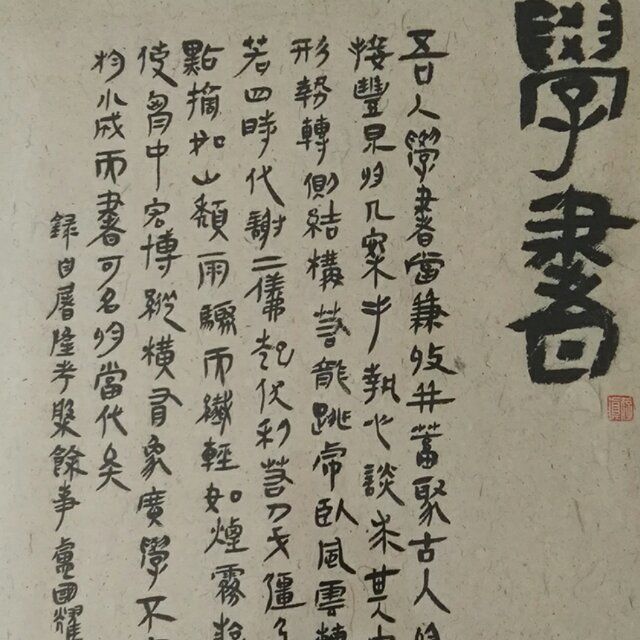 學書
吾人學書當兼收并蓄聚古人於
接豐采於几案手執心談求其
形勢轉側結構若龍跳虎臥風雲轉
若四時代謝二儀起伏利若刀戈彊
點摘如山頹雨驟而纖輕如煙霧
使胸中宏博縱橫有象廣學不
於小成而書可名於當代矣
錄自屠隆考槃餘事盧國耀